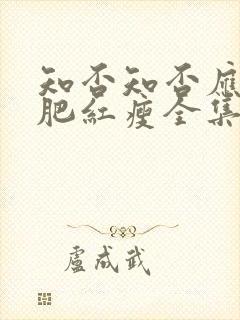 知否知否應
肥紅瘦全集
盧成武